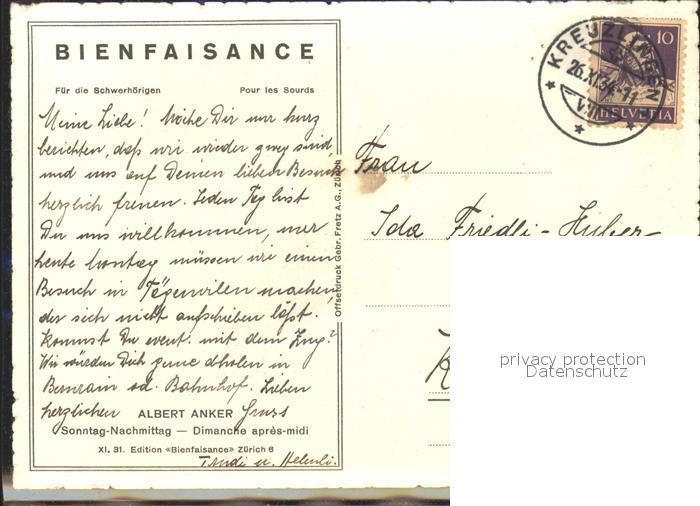 BIENFAISANCE
Für die Schwerhörigen Pour les Sourds
Meine Liebe! Möchte Dir nur kurz
berichten, daß wir wieder zwey sind
und uns auf Deinen lieben Besuch
herzlich freuen. Jeden Tag bist
Du uns willkommen, nur
heute Montag müssen wir einen
Besuch in Tägerwilen machen
der sich nicht aufschieben läßt.
Kommst Du event. mit dem Zug?
Wir würden Dich gerne abholen in
Bernrain od. Bahnhof. Lieben
herzlichen Gruss
ALBERT ANKER
Sonntag-Nachmittag — Dimanche après-midi
XI. 31. Edition «Bienfaisance» Zürich 6
Trudi u. Heleni.
Offsetdruck Gebr. Fretz A.G., Zürich
KREUZLINGEN
26.XI.34-11
VII
10
HELVETIA
Frau
Ida Friedli-Huber
K
privacy protection
Datenschutz